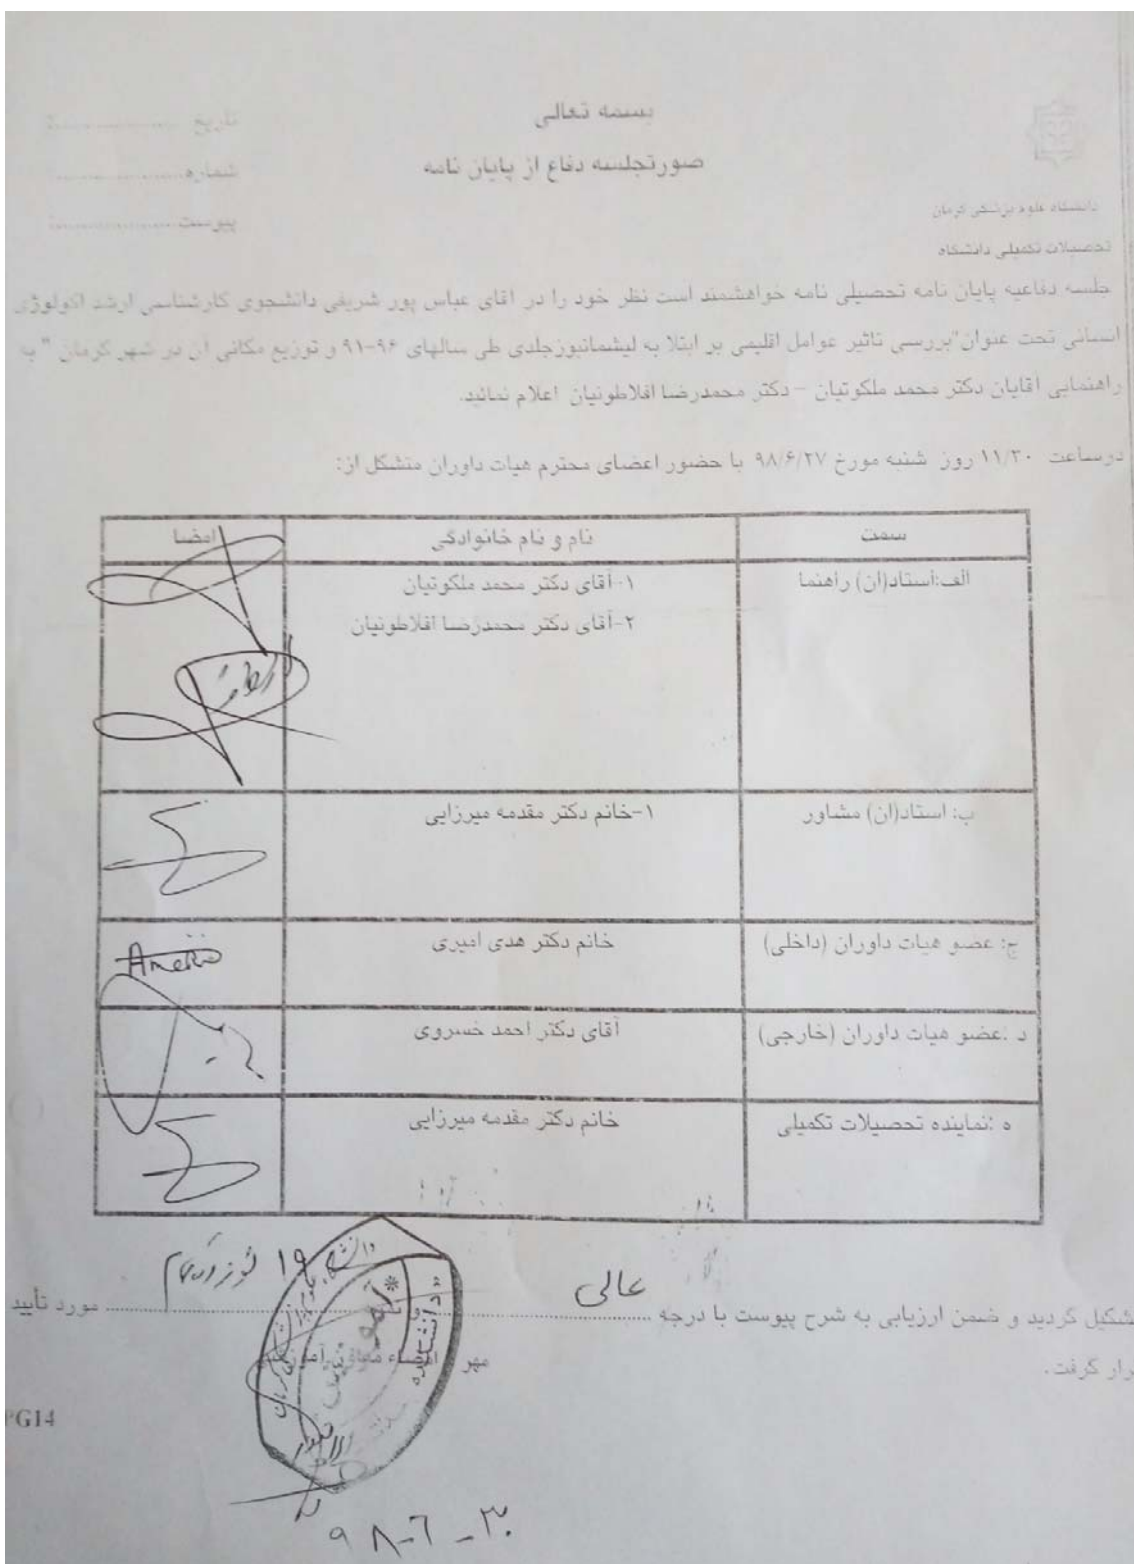 بسمه تعالی
صورتجلسه دفاع از پایان نامه
تاریخ
شماره
پیوست
دانشگاه علوم پزشکی کرمان
تحصیلات تکمیلی دانشگاه
جلسه دفاعیه پایان نامه تحصیلی نامه خواهشمند است نظر خود را در اقای عباس پور شریفی دانشجوی کارشناسی ارشد اکولوژی
انسانی تحت عنوان"بررسی تاثیر عوامل اقلیمی بر ابتلا به لیشمانیوزجلدی طی سالهای ۹۶-۹۱ و توزیع مکانی آن در شهر کرمان " به
راهنمایی آقایان دکتر محمد ملکوتیان – دکتر محمدرضا افلاطونیان اعلام نمائید.
درساعت ۱۱/۳۰ روز شنبه مورخ ۹۸/۶/۲۷ با حضور اعضای محترم هیات داوران متشکل از:
سمت نام و نام خانوادگی امضا
الف:استاد(ان) راهنما ۱-آقای دکتر محمد ملکوتیان
۲-آقای دکتر محمدرضا افلاطونیان
ب: استاد(ان) مشاور ۱-خانم دکتر مقدمه میرزایی
ج: عضو هیات داوران (داخلی) خانم دکتر هدی امیری
د :عضو هیات داوران (خارجی) آقای دکتر احمد خسروی
ه :نماینده تحصیلات تکمیلی خانم دکتر مقدمه میرزایی
شکیل گردید و ضمن ارزیابی به شرح پیوست با درجه عالی ۱۹ مورد تأیید
رار گرفت.
مهر و امضاء
PG14
۹۸-۶-۳۰